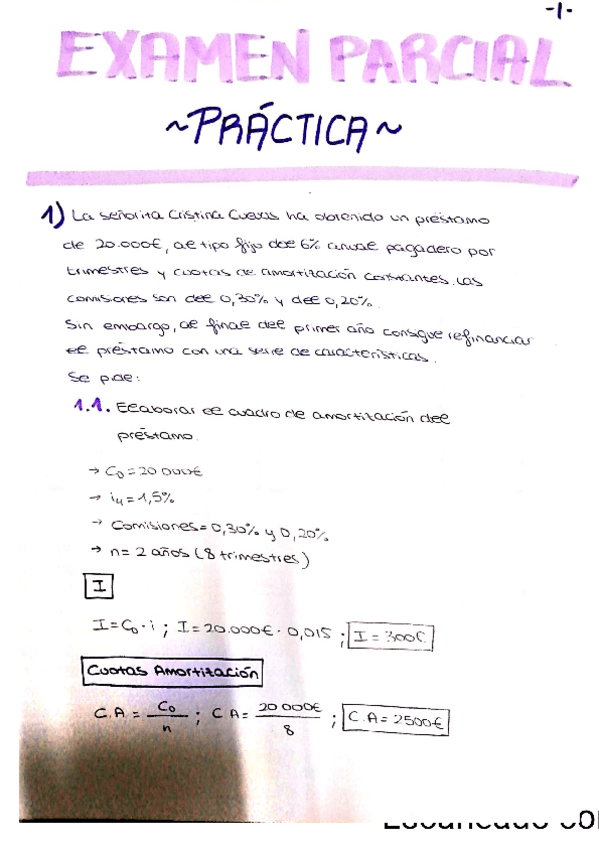 -1-
EXAMEN PARCIAL
~PRÁCTICA~
1) La señorita Cristina Cuevas ha obtenido un préstamo
de 20.000€, al tipo fijo del 6% anual pagadero por
trimestres y cuotas de amortización constantes. Las
comisiones son del 0,30% y del 0,20%.
Sin embargo, al final del primer año consigue refinanciar
el préstamo con una serie de características.
Se pide:
1.1. Elaborar el cuadro de amortización del
préstamo.
→ C₀ = 20 000€
→ i₄ = 1,5%
→ Comisiones = 0,30% y 0,20%
→ n = 2 años (8 trimestres)
I
I = C₀ · i ; I = 20.000€ · 0,015 ; I = 300€
Cuotas Amortización
C.A = C₀/n ; C.A = 20 000€/8 ; C.A = 2500€